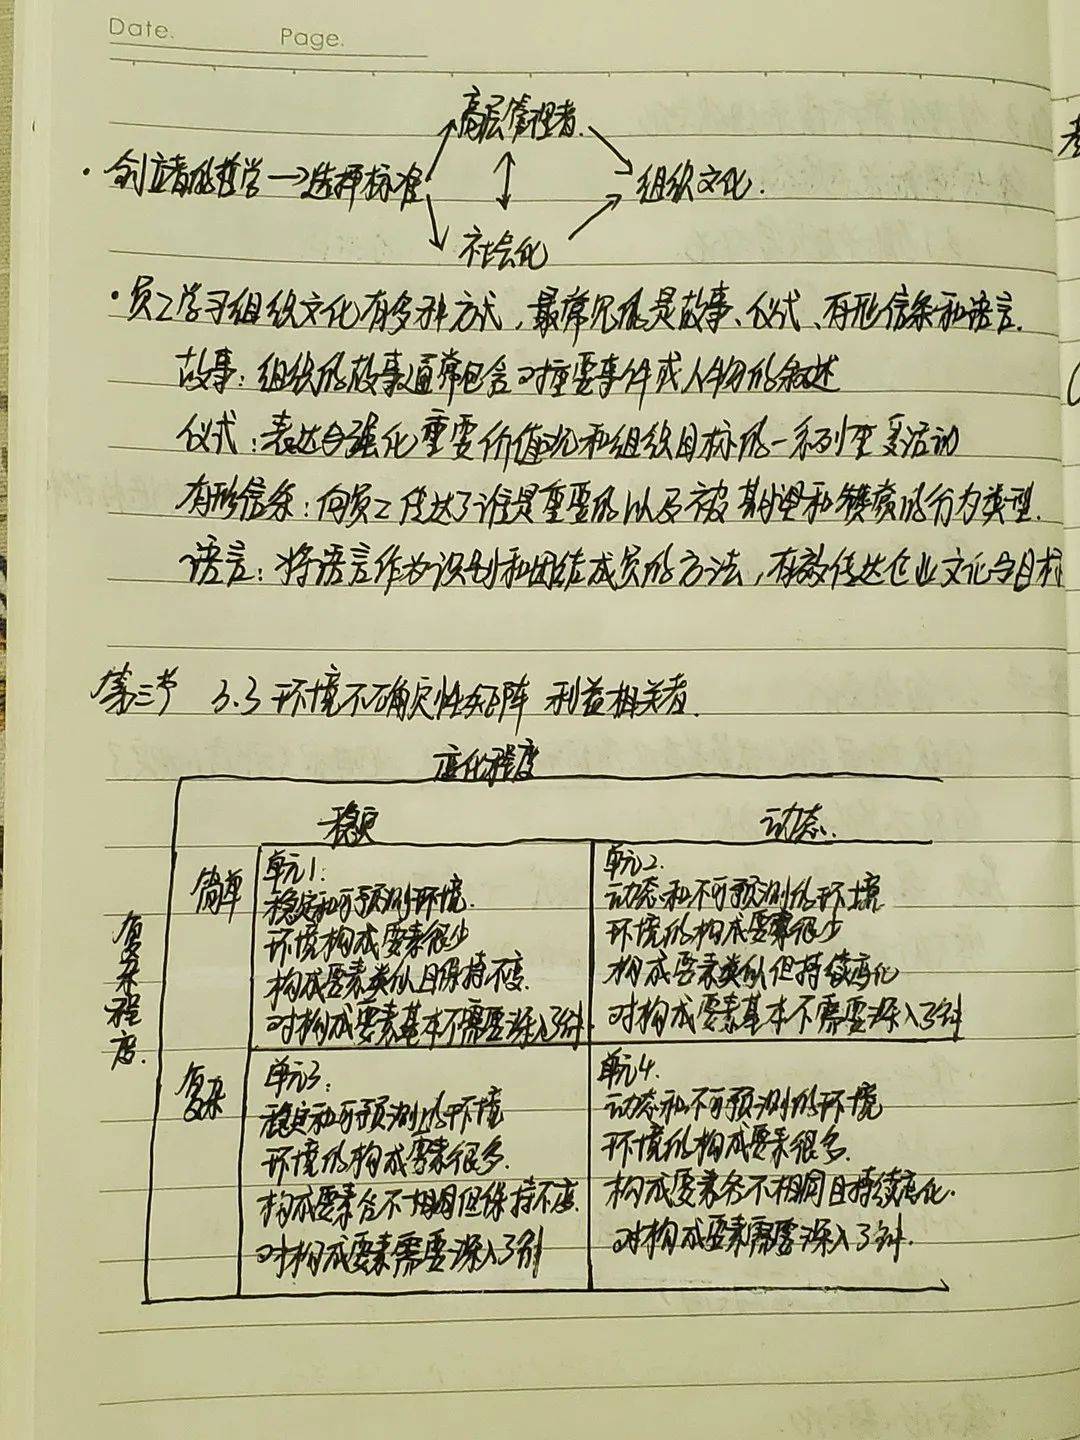 Date. Page.
高层管理者
·创立者的哲学→选择标准 组织文化.
社会化
·员工学习组织文化有多种方式,最常见的是故事、仪式、有形信条和语言.
故事:组织的故事通常包含对重要事件或人物的叙述
仪式:表达与强化重要价值观和组织目标的一系列重复活动
有形信条:向员工传达了谁是重要的以及被期望和赞赏的行为类型.
语言:将语言作为识别和团结成员的方法,有效传达企业文化与目标
第三节 3.3 环境不确定性矩阵 利益相关者.
变化程度
稳定 动态.
复杂程度.
简单
单元1:
稳定和可预测环境.
环境构成要素很少
构成要素类似且保持不变.
对构成要素基本不需要深入了解.
单元2.
动态和不可预测的环境
环境的构成要素很少
构成要素类似但持续变化
对构成要素基本不需要深入了解
复杂
单元3:
稳定和可预测的环境
环境的构成要素很多.
构成要素各不相同但保持不变.
对构成要素需要深入了解
单元4.
动态和不可预测的环境
环境的构成要素很多.
构成要素各不相同且持续变化.
对构成要素需要深入了解.